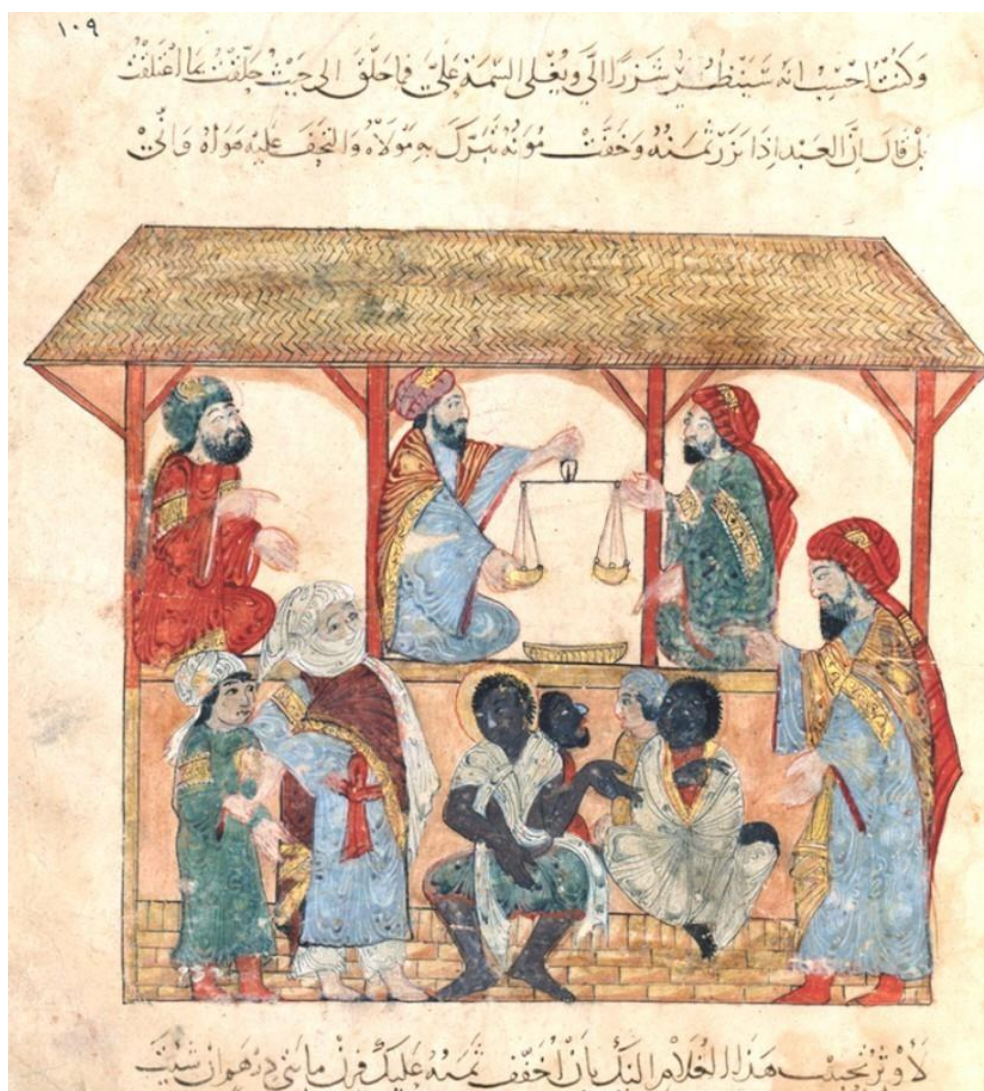 ١٠٩
وَكُنتُ احْسِبُ انه سَيَنْظُرُ شَزَرًا الَيَّ ويُغلى السّمة عَلَيّ فما حَلَّقَ الى حَيْثُ حَلَّقْتُ بما اعْتَلَقْتُ
بَلْ قَالَ اِنَّ العَبْدَ اِذَا نَزَرَ ثَمَنُهُ وَخَفَّتْ مُوَنُهُ تَبَرَّكَ بِهِ مَوْلَاهُ وَالتَحَفَ عَلَيْهِ هَوَاهُ وَانِّي
لَأُوثِرُ تَحْبِيبَ هَذَا الغُلَامِ اليْكَ بِاَنْ اُخَفِّفَ ثَمَنَهُ عَلَيْكَ فَزِنْ مايتى درهم ان شيت